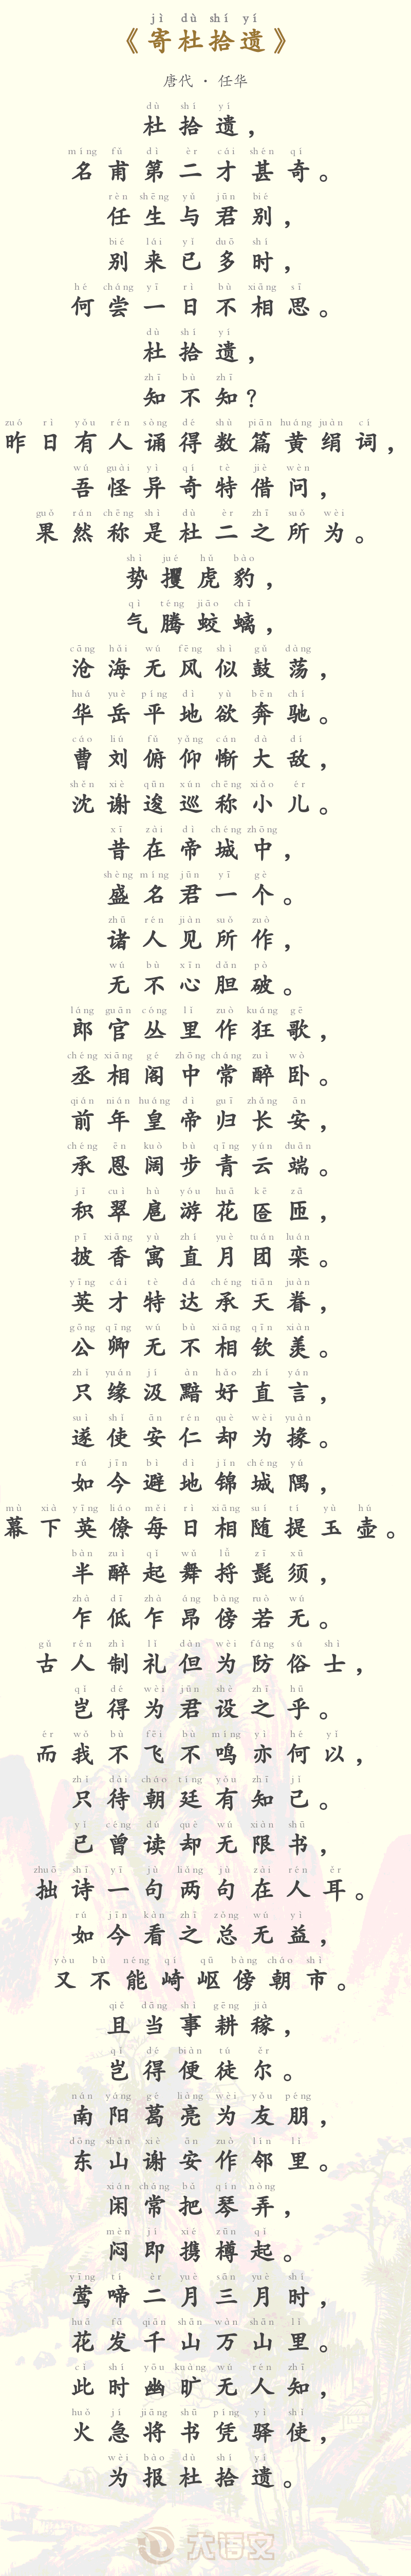 jì dù shí yí
《寄杜拾遗》
唐代 · 任华
dù shí yí
杜拾遗，
míng fǔ dì èr cái shèn qí
名甫第二才甚奇。
rèn shēng yǔ jūn bié
任生与君别，
bié lái yǐ duō shí
别来已多时，
hé cháng yī rì bù xiāng sī
何尝一日不相思。
dù shí yí
杜拾遗，
zhī bù zhī
知不知？
zuó rì yǒu rén sòng dé shù piān huáng juàn cí
昨日有人诵得数篇黄绢词，
wú guài yì qí tè jiè wèn
吾怪异奇特借问，
guǒ rán chēng shì dù èr zhī suǒ wéi
果然称是杜二之所为。
shì jué hǔ bào
势攫虎豹，
qì téng jiāo chī
气腾蛟螭，
cāng hǎi wú fēng sì gǔ dàng
沧海无风似鼓荡，
huá yuè píng dì yù bēn chí
华岳平地欲奔驰。
cáo liú fǔ yǎng cán dà dí
曹刘俯仰惭大敌，
shěn xiè qūn xún chēng xiǎo ér
沈谢逡巡称小儿。
xī zài dì chéng zhōng
昔在帝城中，
shèng míng jūn yī gè
盛名君一个。
zhū rén jiàn suǒ zuò
诸人见所作，
wú bù xīn dǎn pò
无不心胆破。
láng guān cóng lǐ zuò kuáng gē
郎官丛里作狂歌，
chéng xiāng gé zhōng cháng zuì wò
丞相阁中常醉卧。
qián nián huáng dì guī zhǎng ān
前年皇帝归长安，
chéng ēn kuò bù qīng yún duān
承恩阔步青云端。
jī cuì hù yóu huā kē zā
积翠扈游花匼匝，
pī xiāng yù zhí yuè tuán luán
披香寓直月团栾。
yīng cái tè dá chéng tiān juàn
英才特达承天眷，
gōng qīng wú bù xiāng qīn xiàn
公卿无不相钦羡。
zhī yuán jí àn hǎo zhí yán
只缘汲黯好直言，
suì shǐ ān rén què wèi yuàn
遂使安仁却为掾。
rú jīn bì dì jǐn chéng yú
如今避地锦城隅，
mù xià yīng liáo měi rì xiāng suí tí yù hú
幕下英僚每日相随提玉壶。
bàn zuì qǐ wǔ lǚ zī xū
半醉起舞捋髭须，
zhà dī zhà áng bàng ruò wú
乍低乍昂傍若无。
gǔ rén zhì lǐ dàn wèi fáng sú shì
古人制礼但为防俗士，
qǐ dé wèi jūn shè zhī hū
岂得为君设之乎。
ér wǒ bù fēi bù míng yì hé yǐ
而我不飞不鸣亦何以，
zhī dài cháo tíng yǒu zhī jǐ
只待朝廷有知己。
yǐ céng dú què wú xiàn shū
已曾读却无限书，
zhuō shī yī jù liǎng jù zài rén ěr
拙诗一句两句在人耳。
rú jīn kàn zhī zǒng wú yì
如今看之总无益，
yòu bù néng qí qū bàng cháo shì
又不能崎岖傍朝市。
qiě dāng shì gēng jià
且当事耕稼，
qǐ dé biàn tú ěr
岂得便徒尔。
nán yáng gé liàng wèi yǒu péng
南阳葛亮为友朋，
dōng shān xiè ān zuò lín lǐ
东山谢安作邻里。
xián cháng bǎ qín nòng
闲常把琴弄，
mèn jí xié zūn qǐ
闷即携樽起。
yīng tí èr yuè sān yuè shí
莺啼二月三月时，
huā fā qiān shān wàn shān lǐ
花发千山万山里。
cǐ shí yōu kuàng wú rén zhī
此时幽旷无人知，
huǒ jí jiāng shū píng yì shǐ
火急将书凭驿使，
wèi bào dù shí yí
为报杜拾遗。
大语文